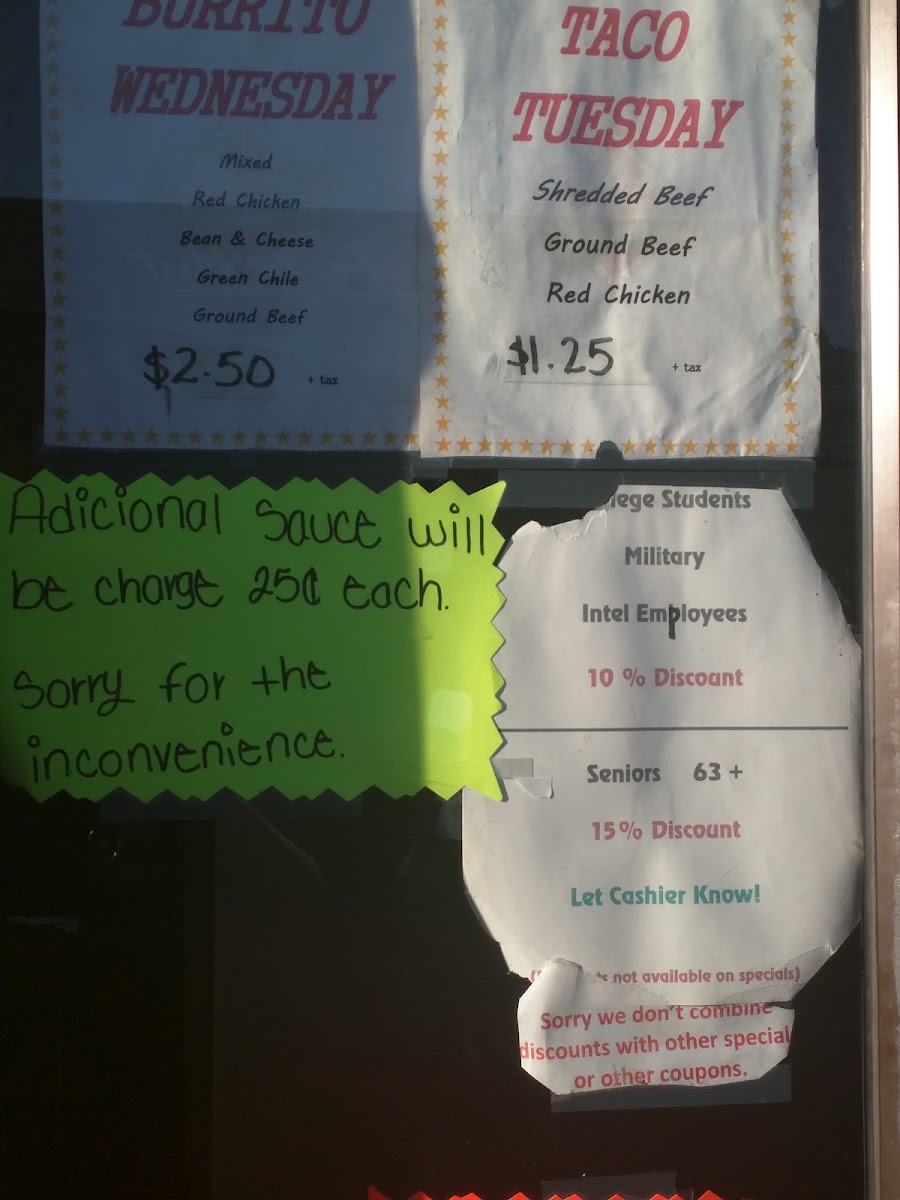 BURRITO
WEDNESDAY
Mixed
Red Chicken
Bean & Cheese
Green Chile
Ground Beef
$2.50 + tax
TACO
TUESDAY
Shredded Beef
Ground Beef
Red Chicken
$1.25 + tax
Adicional Sauce will
be charge 25¢ each.
Sorry for the
inconvenience.
lege Students
Military
Intel Employees
10 % Discount
Seniors 63 +
15% Discount
Let Cashier Know!
not available on specials)
Sorry we don't combine
discounts with other special
or other coupons.